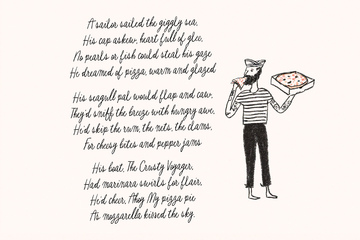 A sailor sailed the giggly sea,
His cap askew, heart full of glee,
No pearls or fish could steal his gaze
He dreamed of pizza, warm and glazed
His seagull pal would flap and caw,
They'd sniff the breeze with hungry awe,
He'd skip the rum, the nets, the clams,
For cheesy bites and pepper jams
His boat, The Crusty Voyager,
Had marinara swirls for flair,
He'd cheer, Ahoy My pizza pie
As mozzarella kissed the sky.